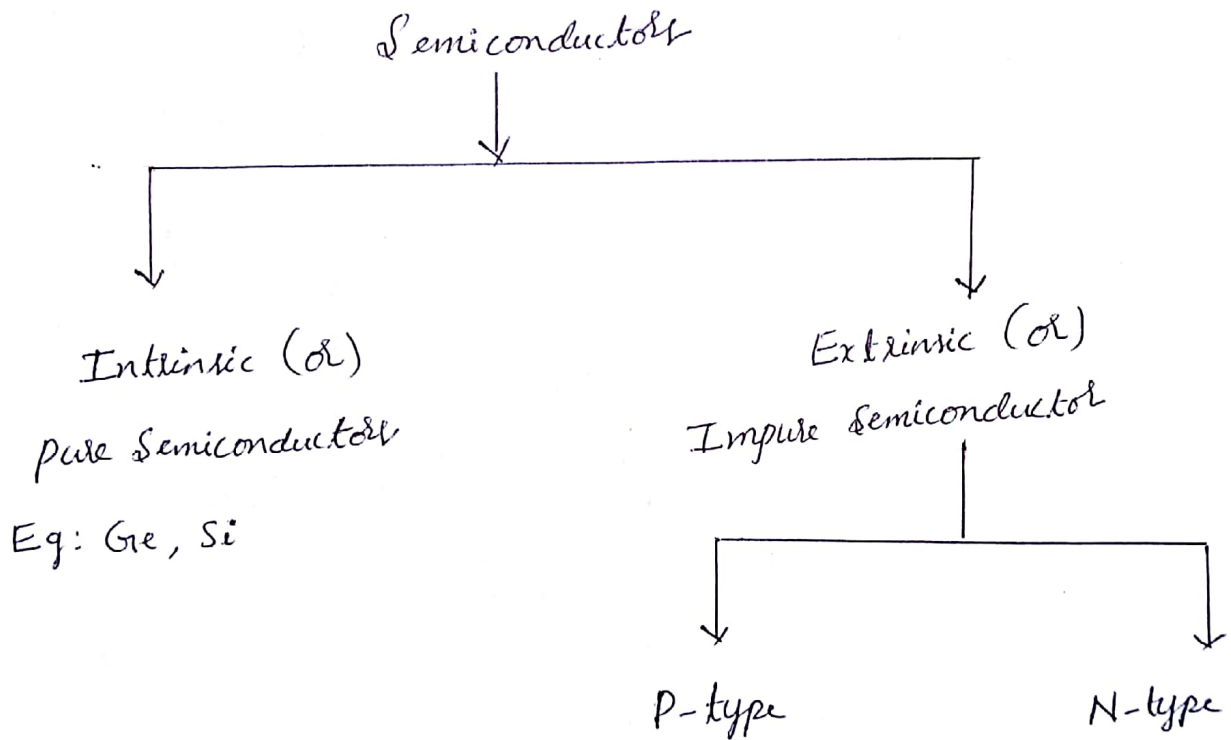 Semiconductors
Intrinsic (or)
pure Semiconductors
Eg: Ge, Si
Extrinsic (or)
Impure Semiconductor
P-type
N-type